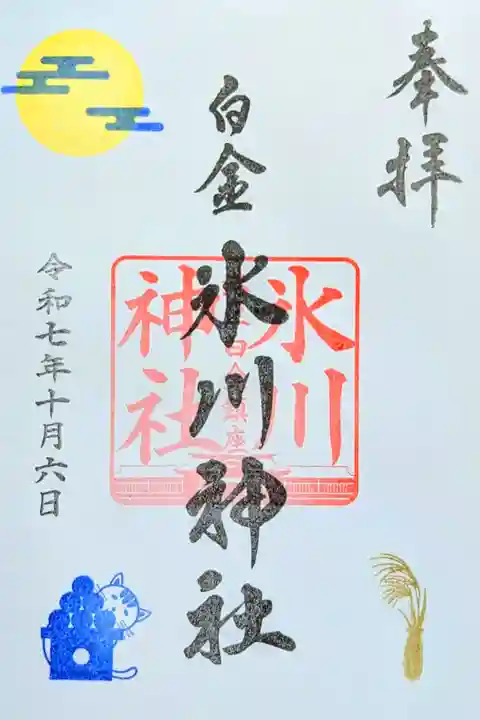 奉拝
白金
氷川神社
氷川
神社
白金鎮座
令和七年十月六日